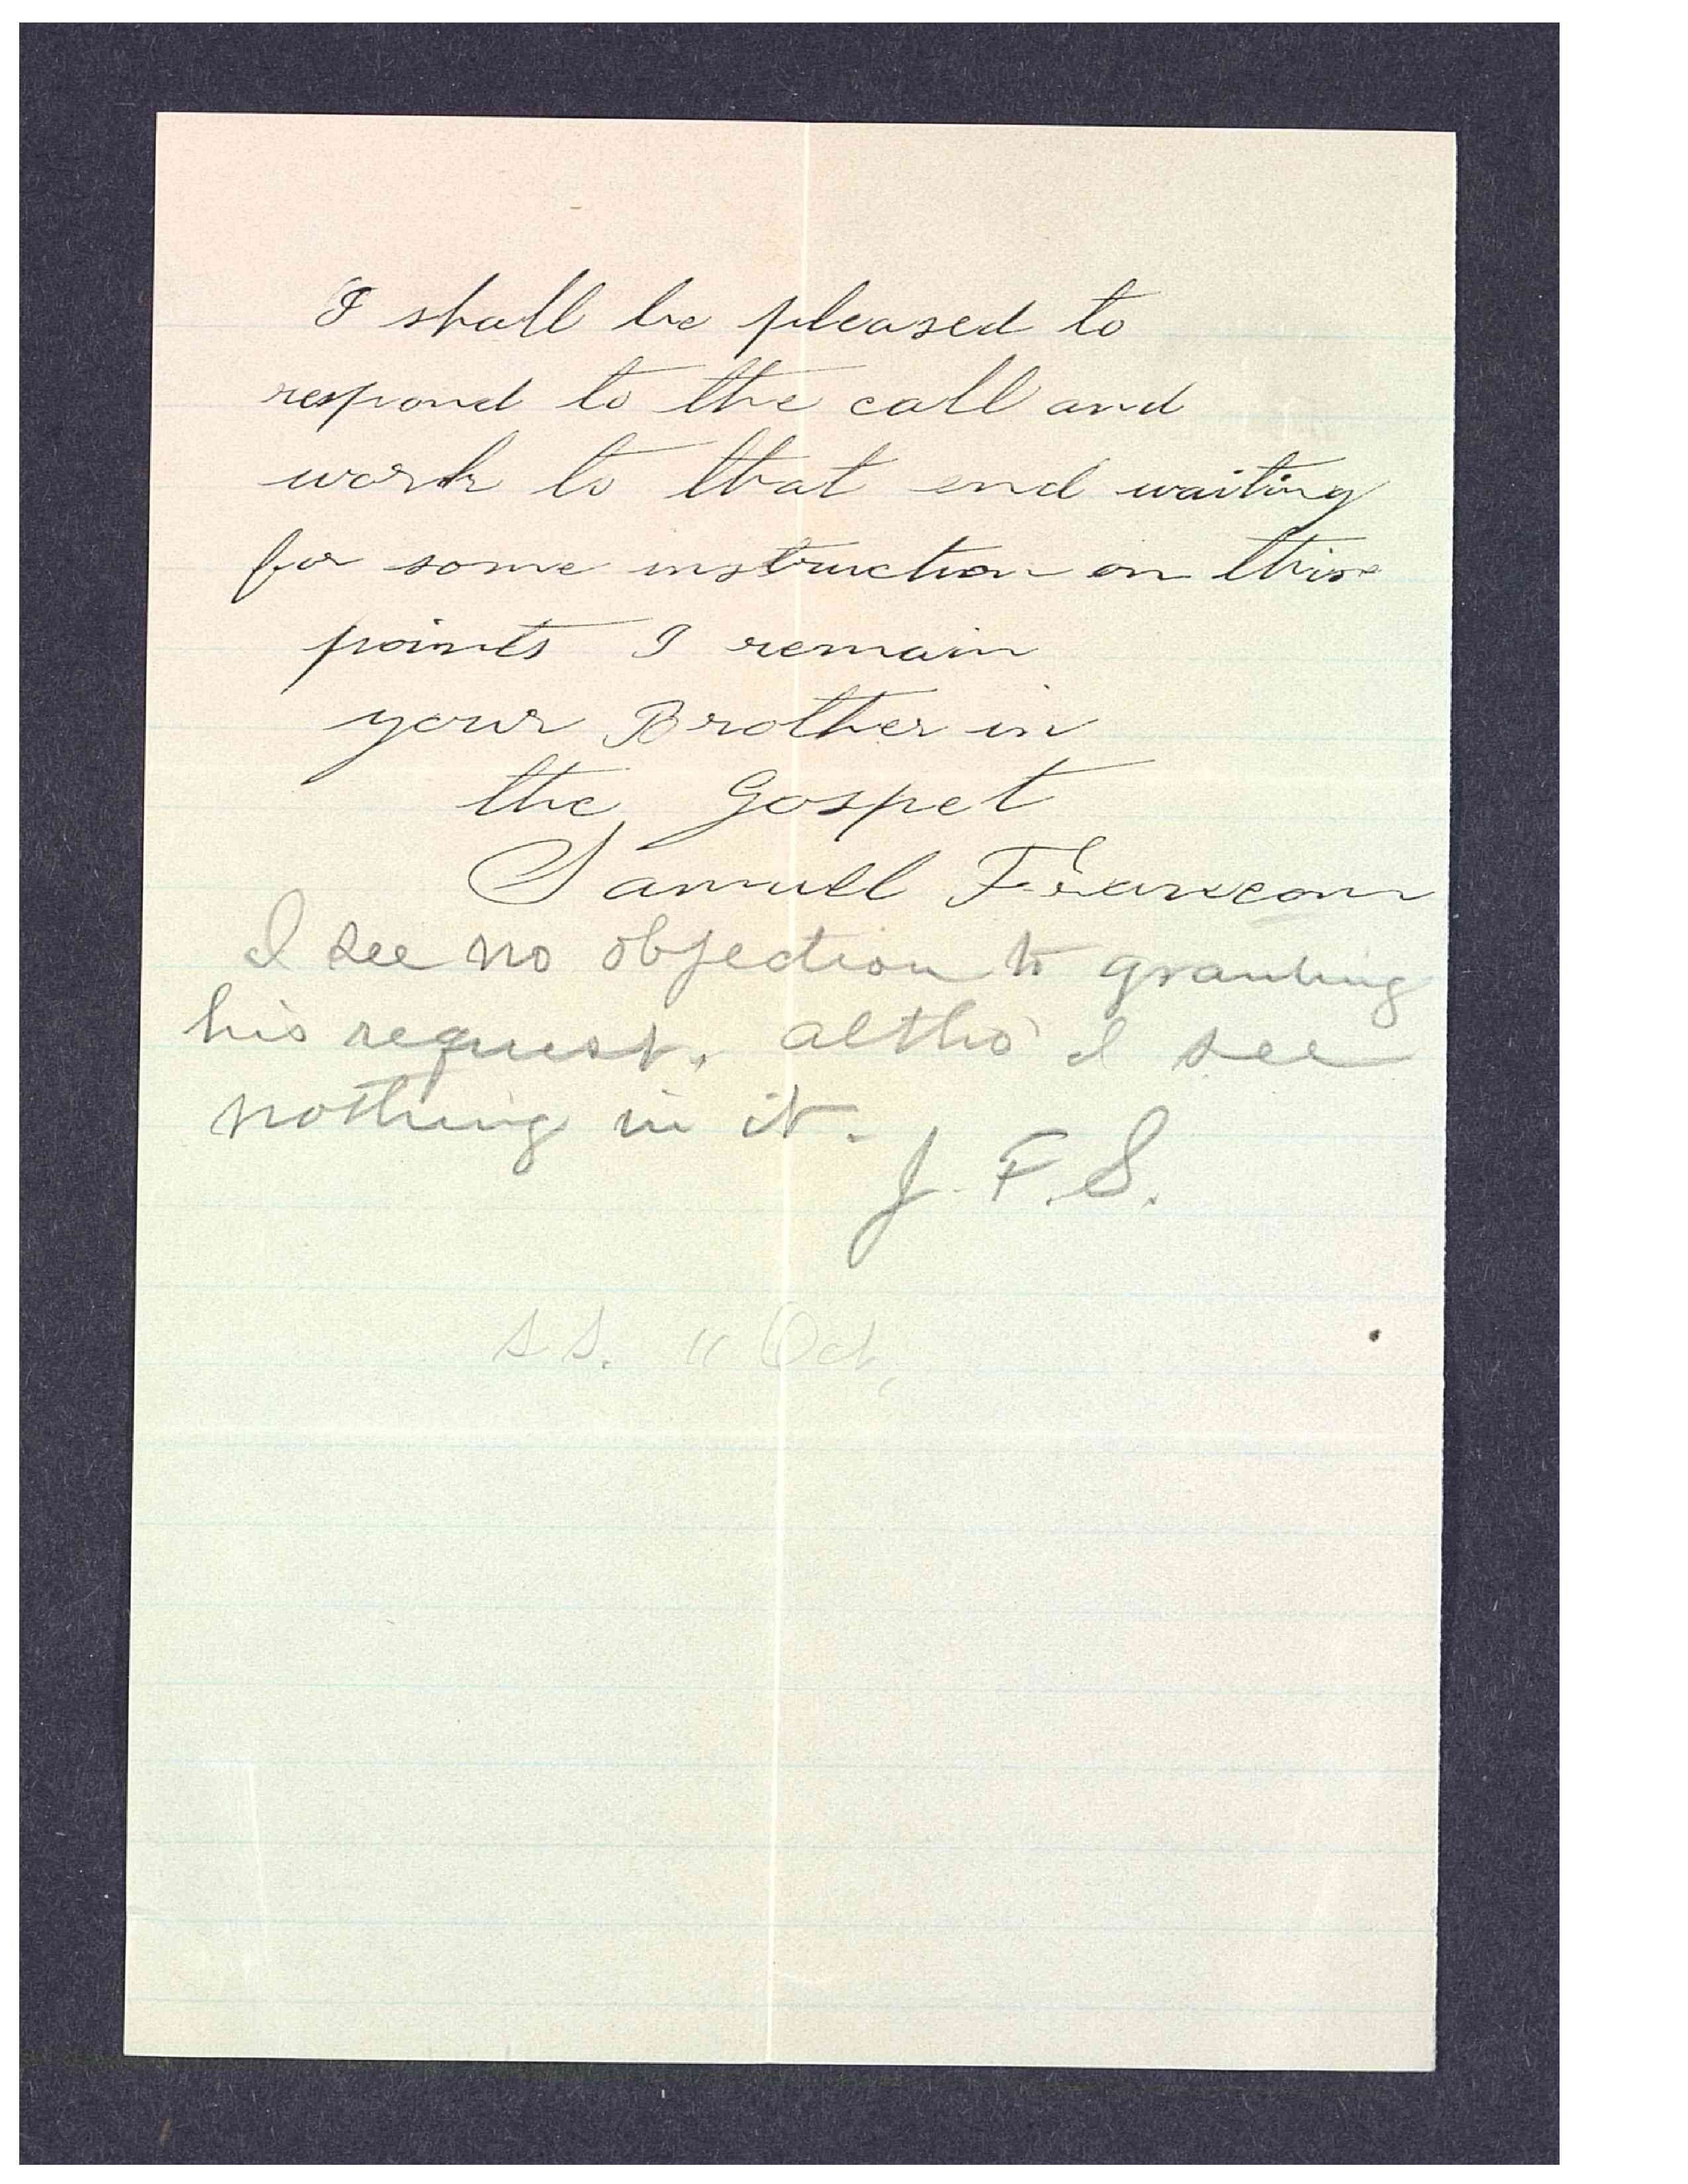 I shall be pleased to
respond to the call and
work to that end waiting
for some instruction on this
points I remain
your Brother in
the Gospel
Samuell Francom
I see no objection to granting
his request, altho' I see
nothing in it.
J. F. S.
11 Oct,